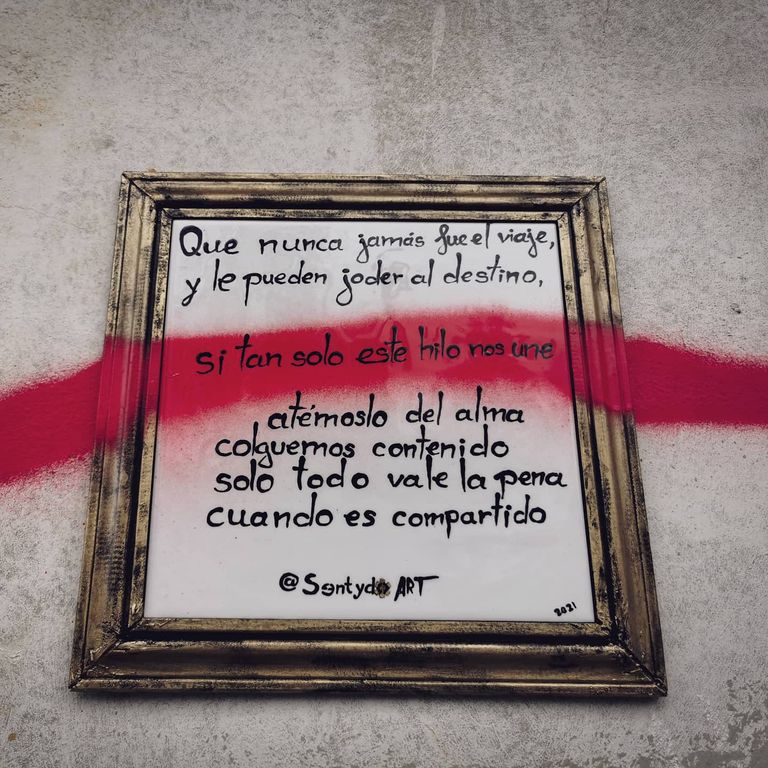 Que nunca jamás fue el viaje,
y le pueden joder al destino,
si tan solo este hilo nos une
atémoslo del alma
colguemos contenido
solo todo vale la pena
cuando es compartido
@Sentydo ART
2021